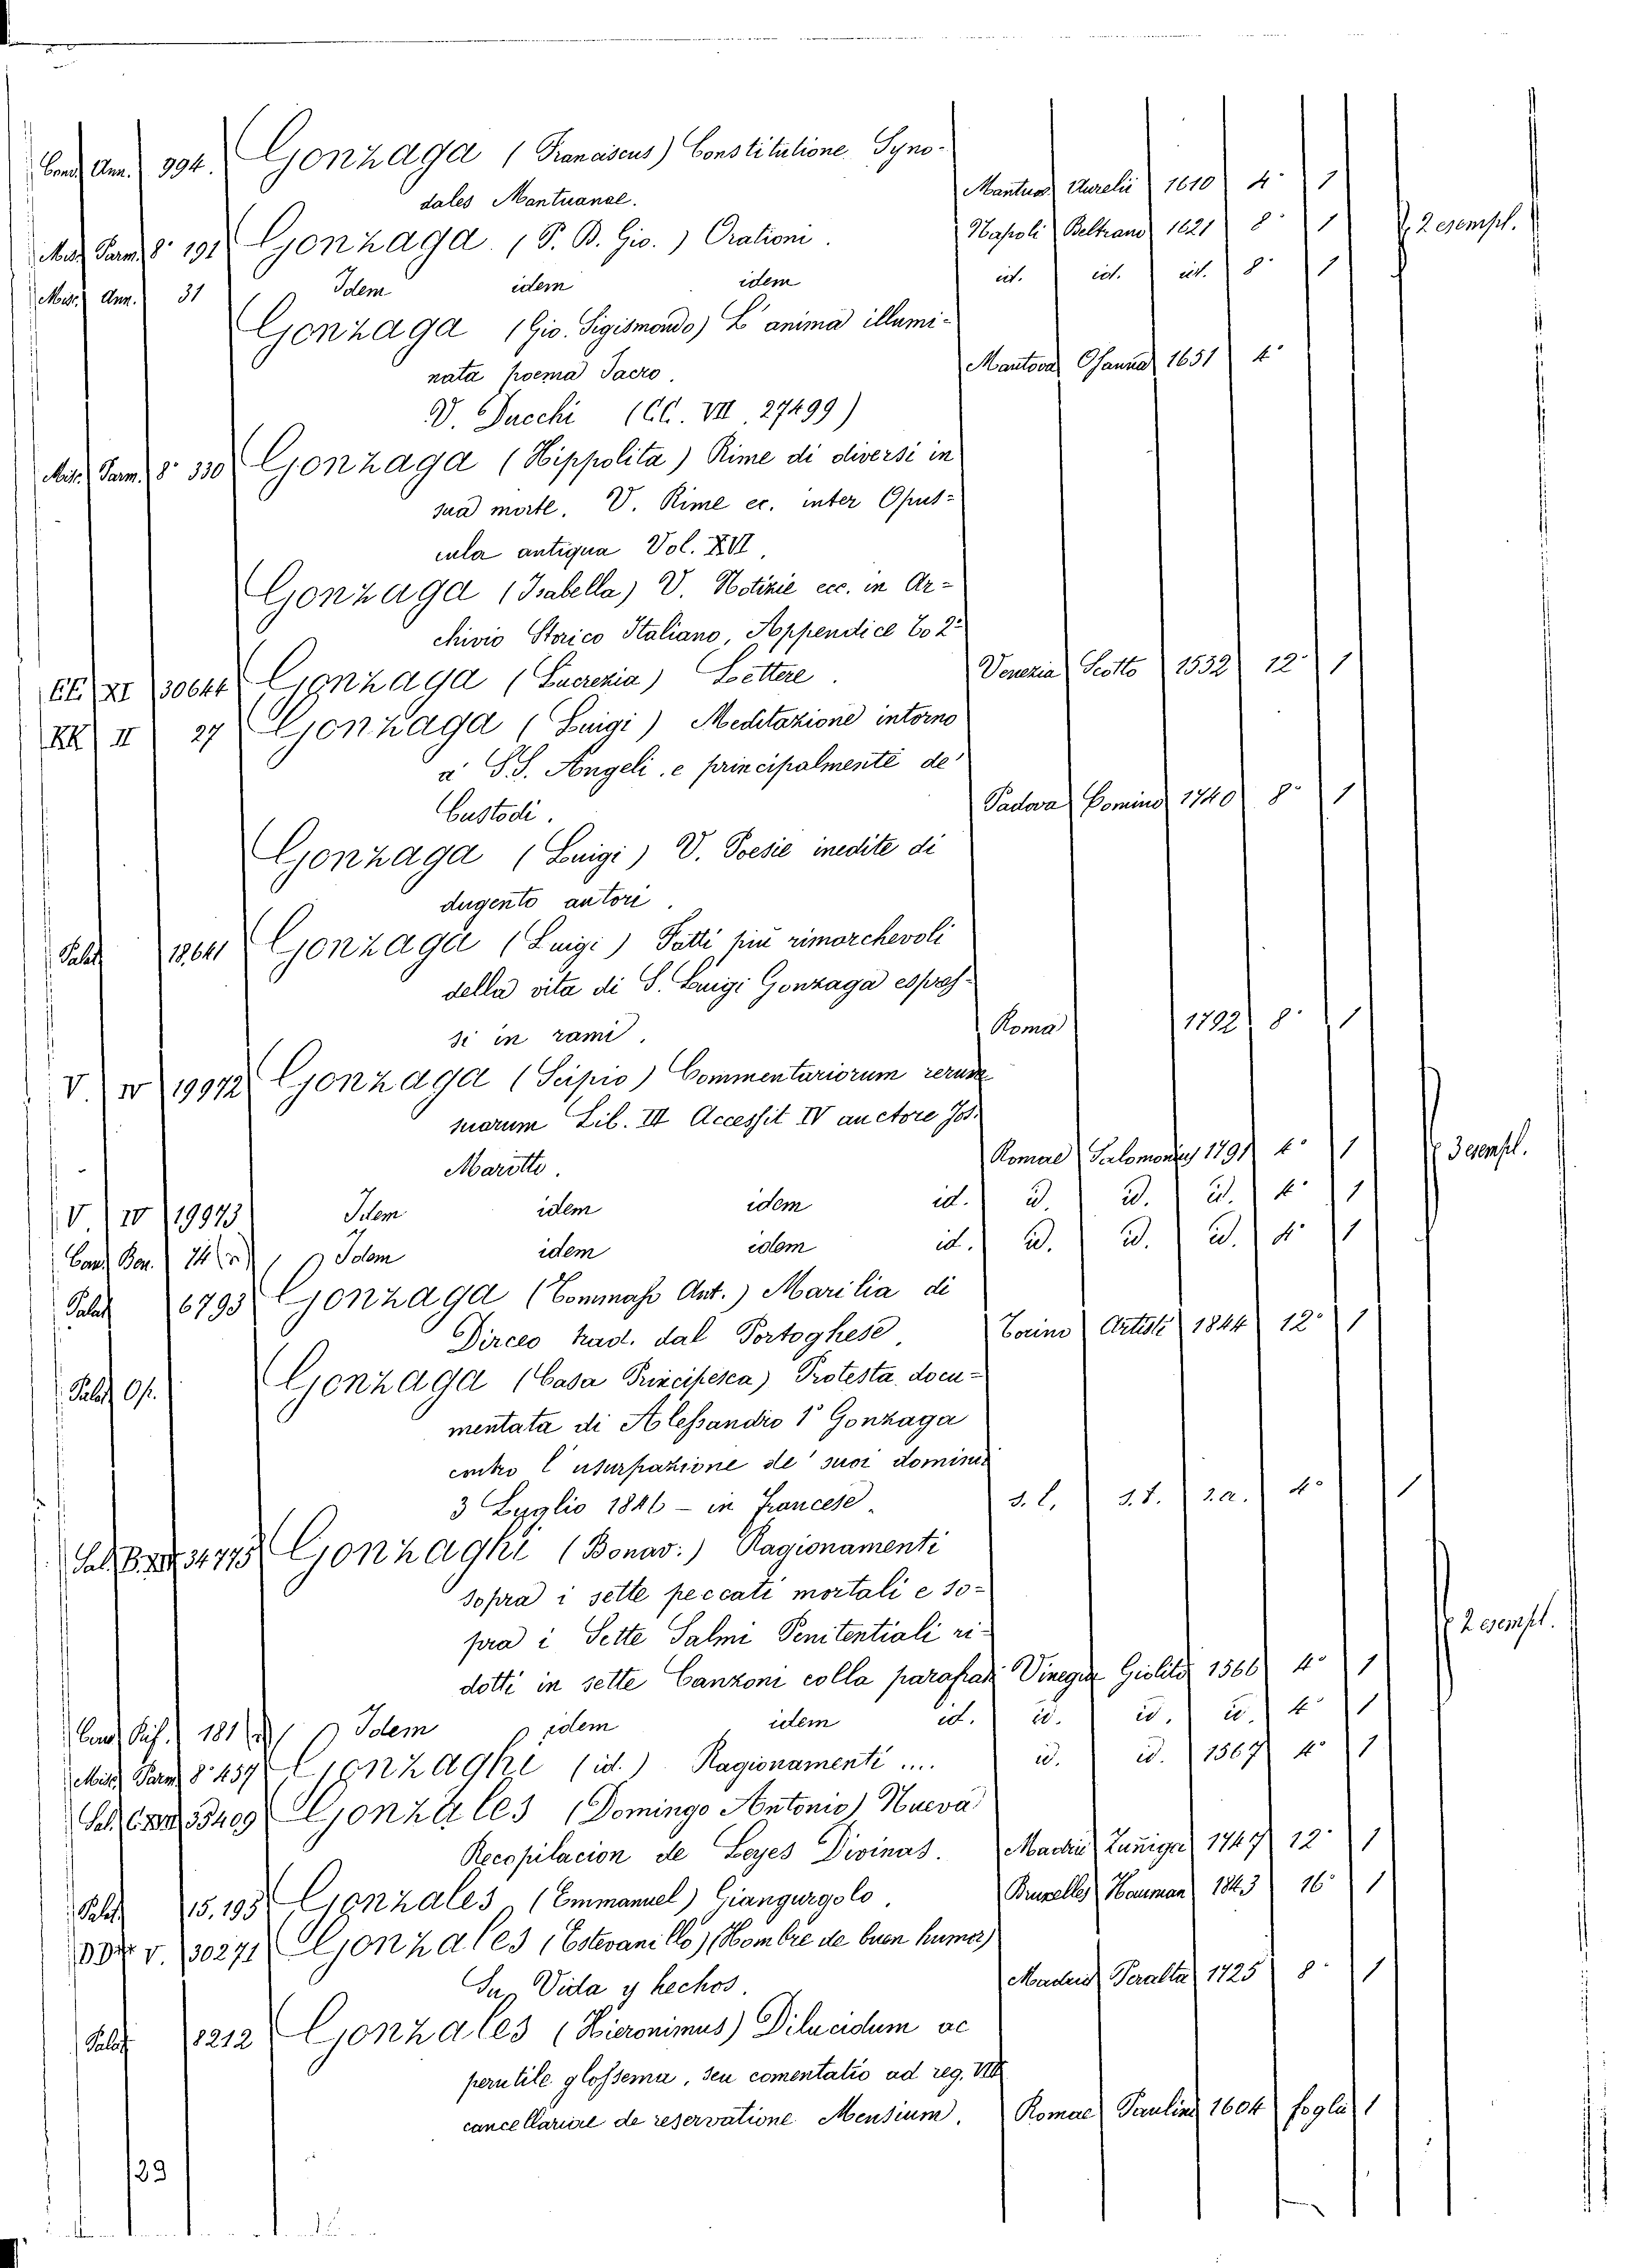 Ann. 994. Gonzaga (Franciscus) Constitutione Syno-
dales Mantuanae. Mantuae Aurelii 1610 4° 1
Misc. Parm. 8° 191 Gonzaga (P. B. Gio.) Orationi. Napoli Beltrano 1621 8° 1 2 esempl.
Misc. Ann. 31 Idem idem idem id. id. id. 8° 1
Gonzaga (Gio. Sigismondo) L'anima illumi-
nata poema Sacro. Mantova Osanna 1651 4°
V. Ducchi (CC. VII. 27499)
Misc. Parm. 8° 330 Gonzaga (Hippolita) Rime di diversi in
sua morte. V. Rime ec. inter Opus-
cula antiqua Vol. XVI.
Gonzaga (Isabella) V. Notizie ecc. in Ar-
chivio Storico Italiano, Appendice To 2°
EE XI 30644 Gonzaga (Lucrezia) Lettere. Venezia Scotto 1552 12° 1
KK II 27 Gonzaga (Luigi) Meditazione intorno
a' S.S. Angeli, e principalmente de'
Custodi. Padova Comino 1740 8° 1
Gonzaga (Luigi) V. Poesie inedite di
dugento autori.
Palat. 18641 Gonzaga (Luigi) Fatti più rimarchevoli
della vita di S. Luigi Gonzaga espres-
si in rami. Roma 1792 8° 1
V. IV 19972 Gonzaga (Scipio) Commentariorum rerum
suarum Lib. III Accessit IV auctore Jos.
Marotto. Romae Salomonius 1791 4° 1 3 esempl.
V. IV 19973 Idem idem idem id. id. id. id. 4° 1
Idem idem idem id. id. id. id. 4° 1
Palat 6793 Gonzaga (Tommaso Ant.) Marilia di
Dirceo trad. dal Portoghese. Torino Artisti 1844 12° 1
Palat Op. Gonzaga (Casa Principesca) Protesta docu-
mentata di Alessandro 1° Gonzaga
contro l'usurpazione de' suoi dominii
3 Luglio 1846 - in Francese. s. l. s. t. s. a. 4° 1
34775 Gonzaghi (Bonav:) Ragionamenti
sopra i sette peccati mortali e so-
pra i Sette Salmi Penitentiali ri-
dotti in sette Canzoni colla parafrasi Vinegia Giolito 1566 4° 1 2 esempl.
181 Idem idem idem id. id. id. id. 4° 1
Misc. Parm 8° 457 Gonzaghi (id.) Ragionamenti .... id. id. 1567 4° 1
35409 Gonzales (Domingo Antonio) Nueva
Recopilacion de Leyes Divinas. Madrid Zuñiga 1747 12° 1
Palat. 15.195 Gonzales (Emmanuel) Giangurgolo. Bruxelles Hauman 1843 16° 1
V. 30271 Gonzales (Estevanillo) (Hombre de buen humor)
Su Vida y hechos. Madrid Peralta 1725 8° 1
Palat 8212 Gonzales (Hieronimus) Dilucidum ac
perutile glossema, seu comentatio ad reg. VIII
cancellariae de reservatione Mensium. Romae Paulini 1604 foglio 1